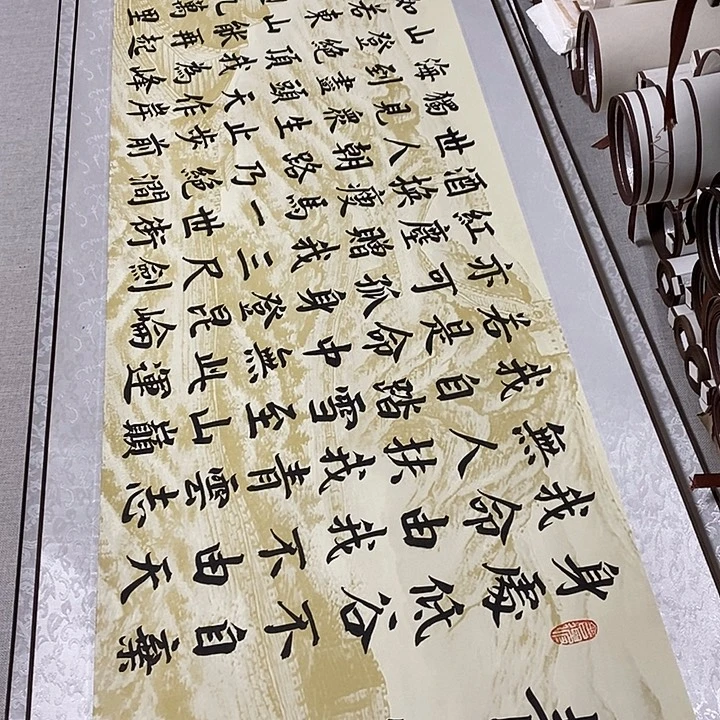 身處低谷不自棄
我命由我不由天
無人扶我青雲志
我自踏雪至山巔
若是命中無此運
亦可孤身登昆崙
紅塵贈我三尺劍
酒換瘦馬一世街
世人朝路乃絕澗
獨見衆生止步前
海到盡頭天作岸
山登絕頂我為峰
如若東山能再起
已萬里